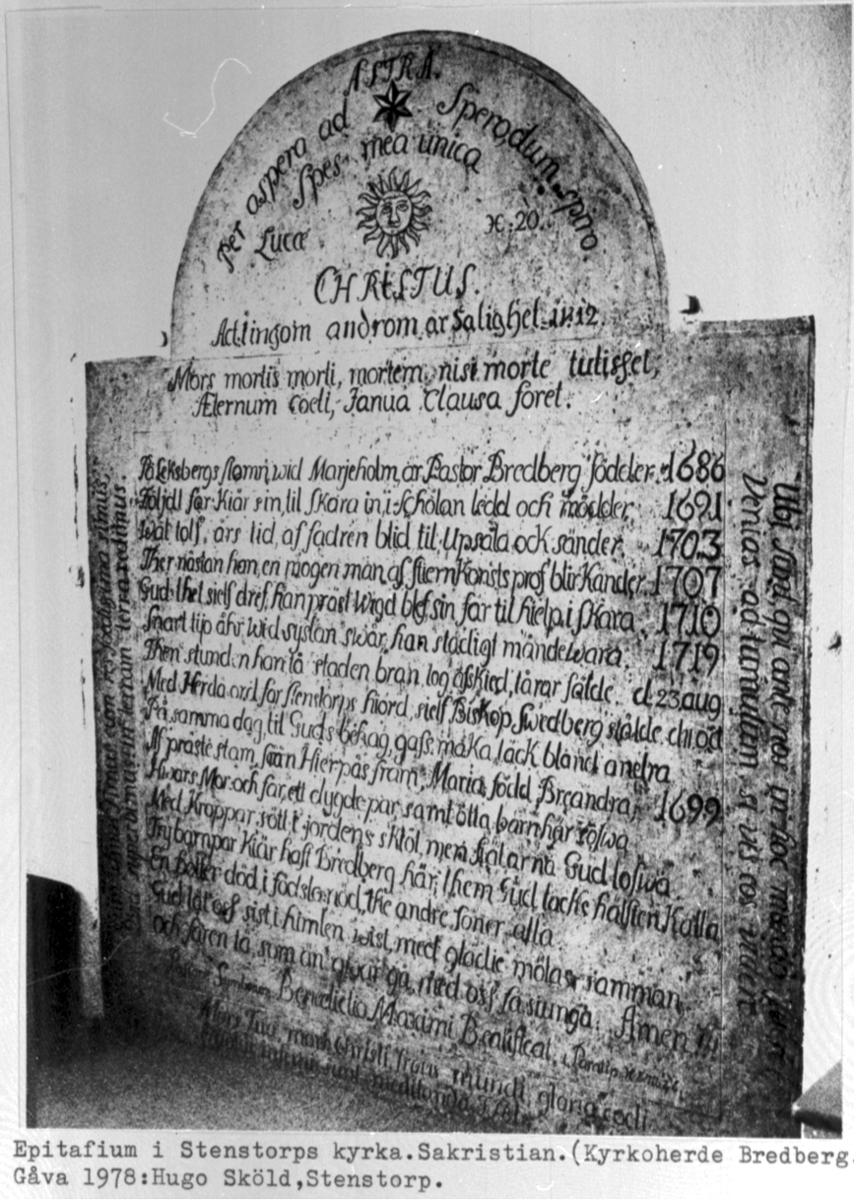 ASTRA.
Per aspera ad
Sperodum spiro.
Spes mea unica
Lucæ
X:20.
CHRISTUS.
Act: ingom androm ar Salighet
Mors mortis morti, mortem nisi morte tulisset,
Æternum coeli, Janua Clausa foret.
På Leksbergs stomn, wid Marjeholm, är Pastor Bredberg födder. 1686
Följdt far kiär sin, til Skara in, i Scholan ledd och mödder, 1691.
wät tolf, års tid, af fadren blid til Upsala ock sänder, 1703
Ther nästan han, en mogen man, af stiernKonsts prof blir Kander. 1707
Gud thet sielf dref, han präst Wigd blef sin far til hielp i Skara, 1710
Snart tijo åhr wid syslan swår, han städigt mände wara. 1719
Then stunden han lä staden bran, tog afskied, tårar fälde. d 23 aug.
Med Herda ord för stenstorps hiord, sielf Biskop Swedberg stälde. d 11 oct
På samma dag, til Guds behag, gafs måka, täck bland andra
Af präste stam, från Hierpås fram, Maria född Breandra, 1699
Hwars Mor och far, ett dygde par samt otta barn här sofwa
Med Kroppar sött i jordens skiöt, men siälarna Gud lofwa
Try barnpar Kiär haft Bredberg här, them Gud tacks hälften Kalla
En dotter död i födslo nöd, the andre söner alla.
Gud låt oss sist i himlen wist, med glädie mötas samman
och fåren tå, som än qwar gå, med oss få siunga: Amen
Symbolum Benedictio Maxima Beatificat,
Mors Tua, mors Christi, fraus mundi, gloria coeli
meditanda
Ubi sunt qui ante nos in hoc mundo
Venias ad tumulum si vis eos videre
superbimus in terram terra redimus.
Epitafium i Stenstorps kyrka.Sakristian.(Kyrkoherde Bredberg.
Gåva 1978:Hugo Sköld,Stenstorp.